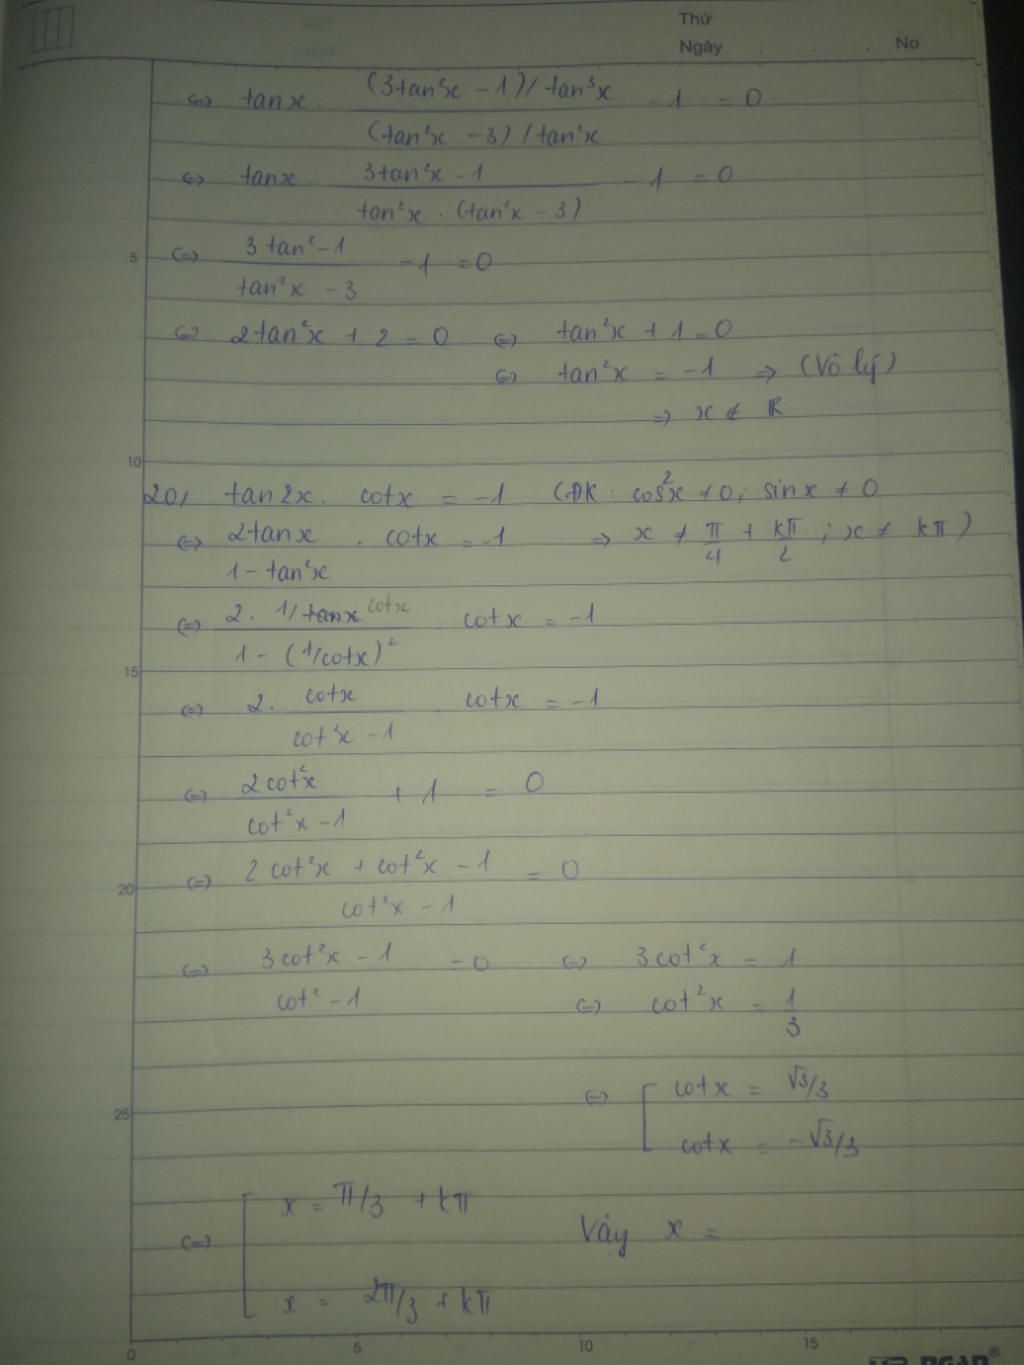 Thứ
Ngày . . . No
⇔ tanx . (3tan²x - 1) / tan³x / (tan²x - 3) / tan²x - 1 = 0
⇔ tanx . 3tan²x - 1 / tan²x . (tan²x - 3) - 1 = 0
5 ⇔ 3tan² - 1 / tan²x - 3 - 1 = 0
⇔ 2tan²x + 2 = 0 ⇔ tan²x + 1 = 0
⇔ tan²x = -1 ⇒ (Vô lý)
⇒ x ∉ ℝ
10
20, tan2x . cotx = -1 (ĐK : cos²x ≠ 0 ; sinx ≠ 0
⇔ 2tanx / 1 - tan²x . cotx = -1 ⇒ x ≠ π/4 + kπ/2 ; x ≠ kπ)
⇔ 2 . 1/cotx / 1 - (1/cotx)² . cotx = -1
15
⇔ 2 . cotx / cot²x - 1 . cotx = -1
⇔ 2cot²x / cot²x - 1 + 1 = 0
20 ⇔ 2cot²x + cot²x - 1 / cot²x - 1 = 0
⇔ 3cot²x - 1 / cot² - 1 = 0 ⇔ 3cot²x = 1
⇔ cot²x = 1/3
25 ⇔ [ cotx = √3/3
cotx = -√3/3
⇔ [ x = π/3 + kπ
Vậy x =
x = 2π/3 + kπ
0 5 10 15